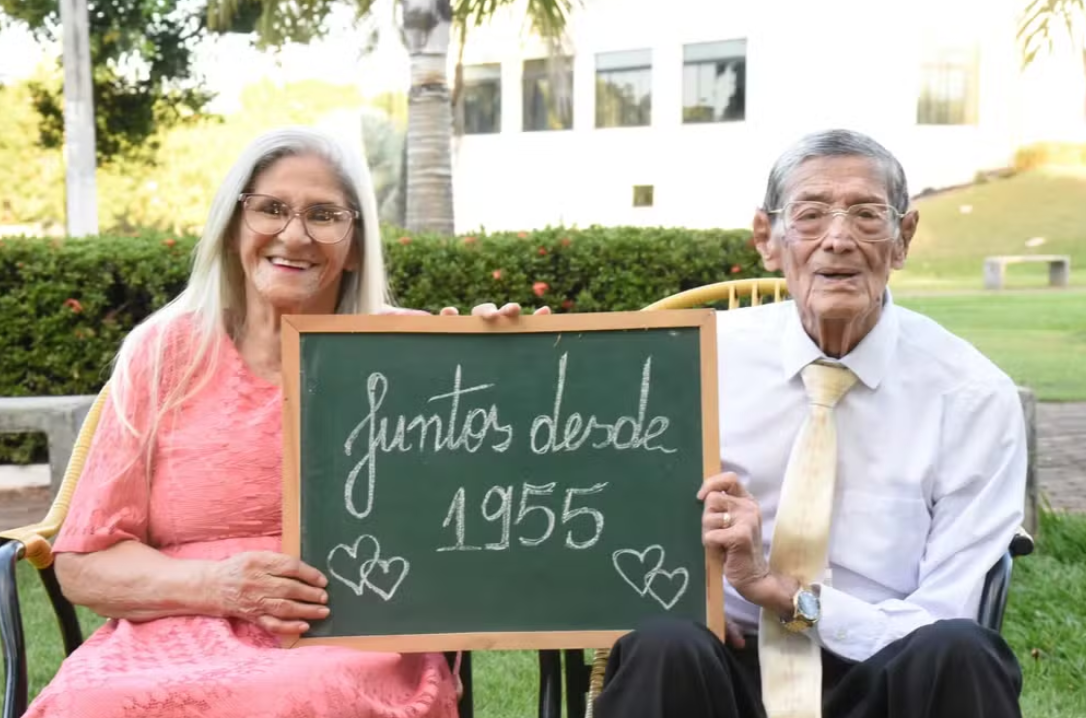 Juntos desde
1955